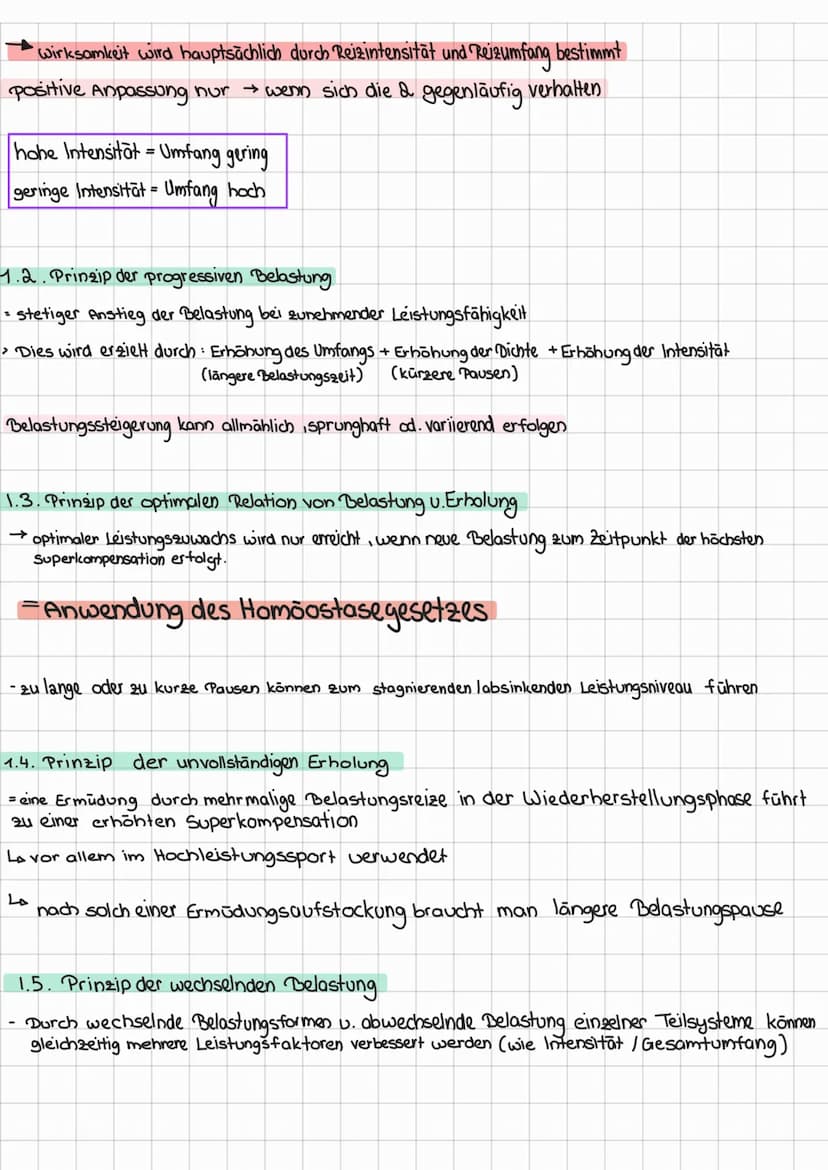 → Wirksamkeit wird hauptsächlich durch Reizintensität und Reizumfang bestimmt
positive Anpassung nur → wenn sich die 2 gegenläufig verhalten
hohe Intensität = Umfang gering
geringe Intensität = Umfang hoch
1.2. Prinzip der progressiven Belastung
= stetiger Anstieg der Belastung bei zunehmender Leistungsfähigkeit
> Dies wird erzielt durch : Erhöhung des Umfangs + Erhöhung der Dichte + Erhöhung der Intensität
(längere Belastungszeit) (kürzere Pausen)
Belastungssteigerung kann allmählich , sprunghaft od. variierend erfolgen
1.3. Prinzip der optimalen Relation von Belastung u. Erholung
→ optimaler Leistungszuwachs wird nur erreicht , wenn neue Belastung zum Zeitpunkt der höchsten
Superkompensation erfolgt.
= Anwendung des Homöostasegesetzes
- zu lange oder zu kurze Pausen können zum stagnierenden / absinkenden Leistungsniveau führen
1.4. Prinzip der unvollständigen Erholung
= eine Ermüdung durch mehrmalige Belastungsreize in der Wiederherstellungsphase führt
zu einer erhöhten Superkompensation
↳ vor allem im Hochleistungssport verwendet
↳ nach solch einer Ermüdungsaufstockung braucht man längere Belastungspause
1.5. Prinzip der wechselnden Belastung
- Durch wechselnde Belastungsformen u. abwechselnde Belastung einzelner Teilsysteme können
gleichzeitig mehrere Leistungsfaktoren verbessert werden (wie Intensität / Gesamtumfang)